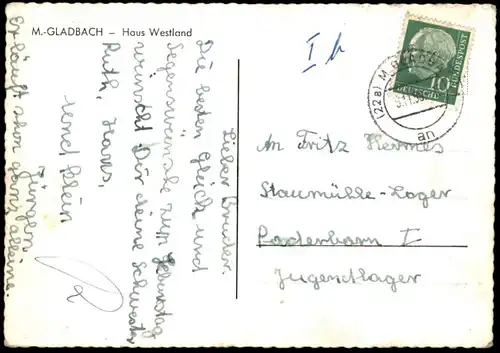 M.-GLADBACH – Haus Westland
Lieber Bruder.
Die besten Glück und
Segenswünsche zum Geburtstag
wünscht Dir deine Schwester
Ruth, Hans,
und klein
Jürgen
Er läuft schon ganz alleine.
I b
DEUTSCHE BUNDESPOST
10
(22a) M.GLAD
an
An Fritz Hermes
Staumühle-Lager
Paderborn I
Jugendlager